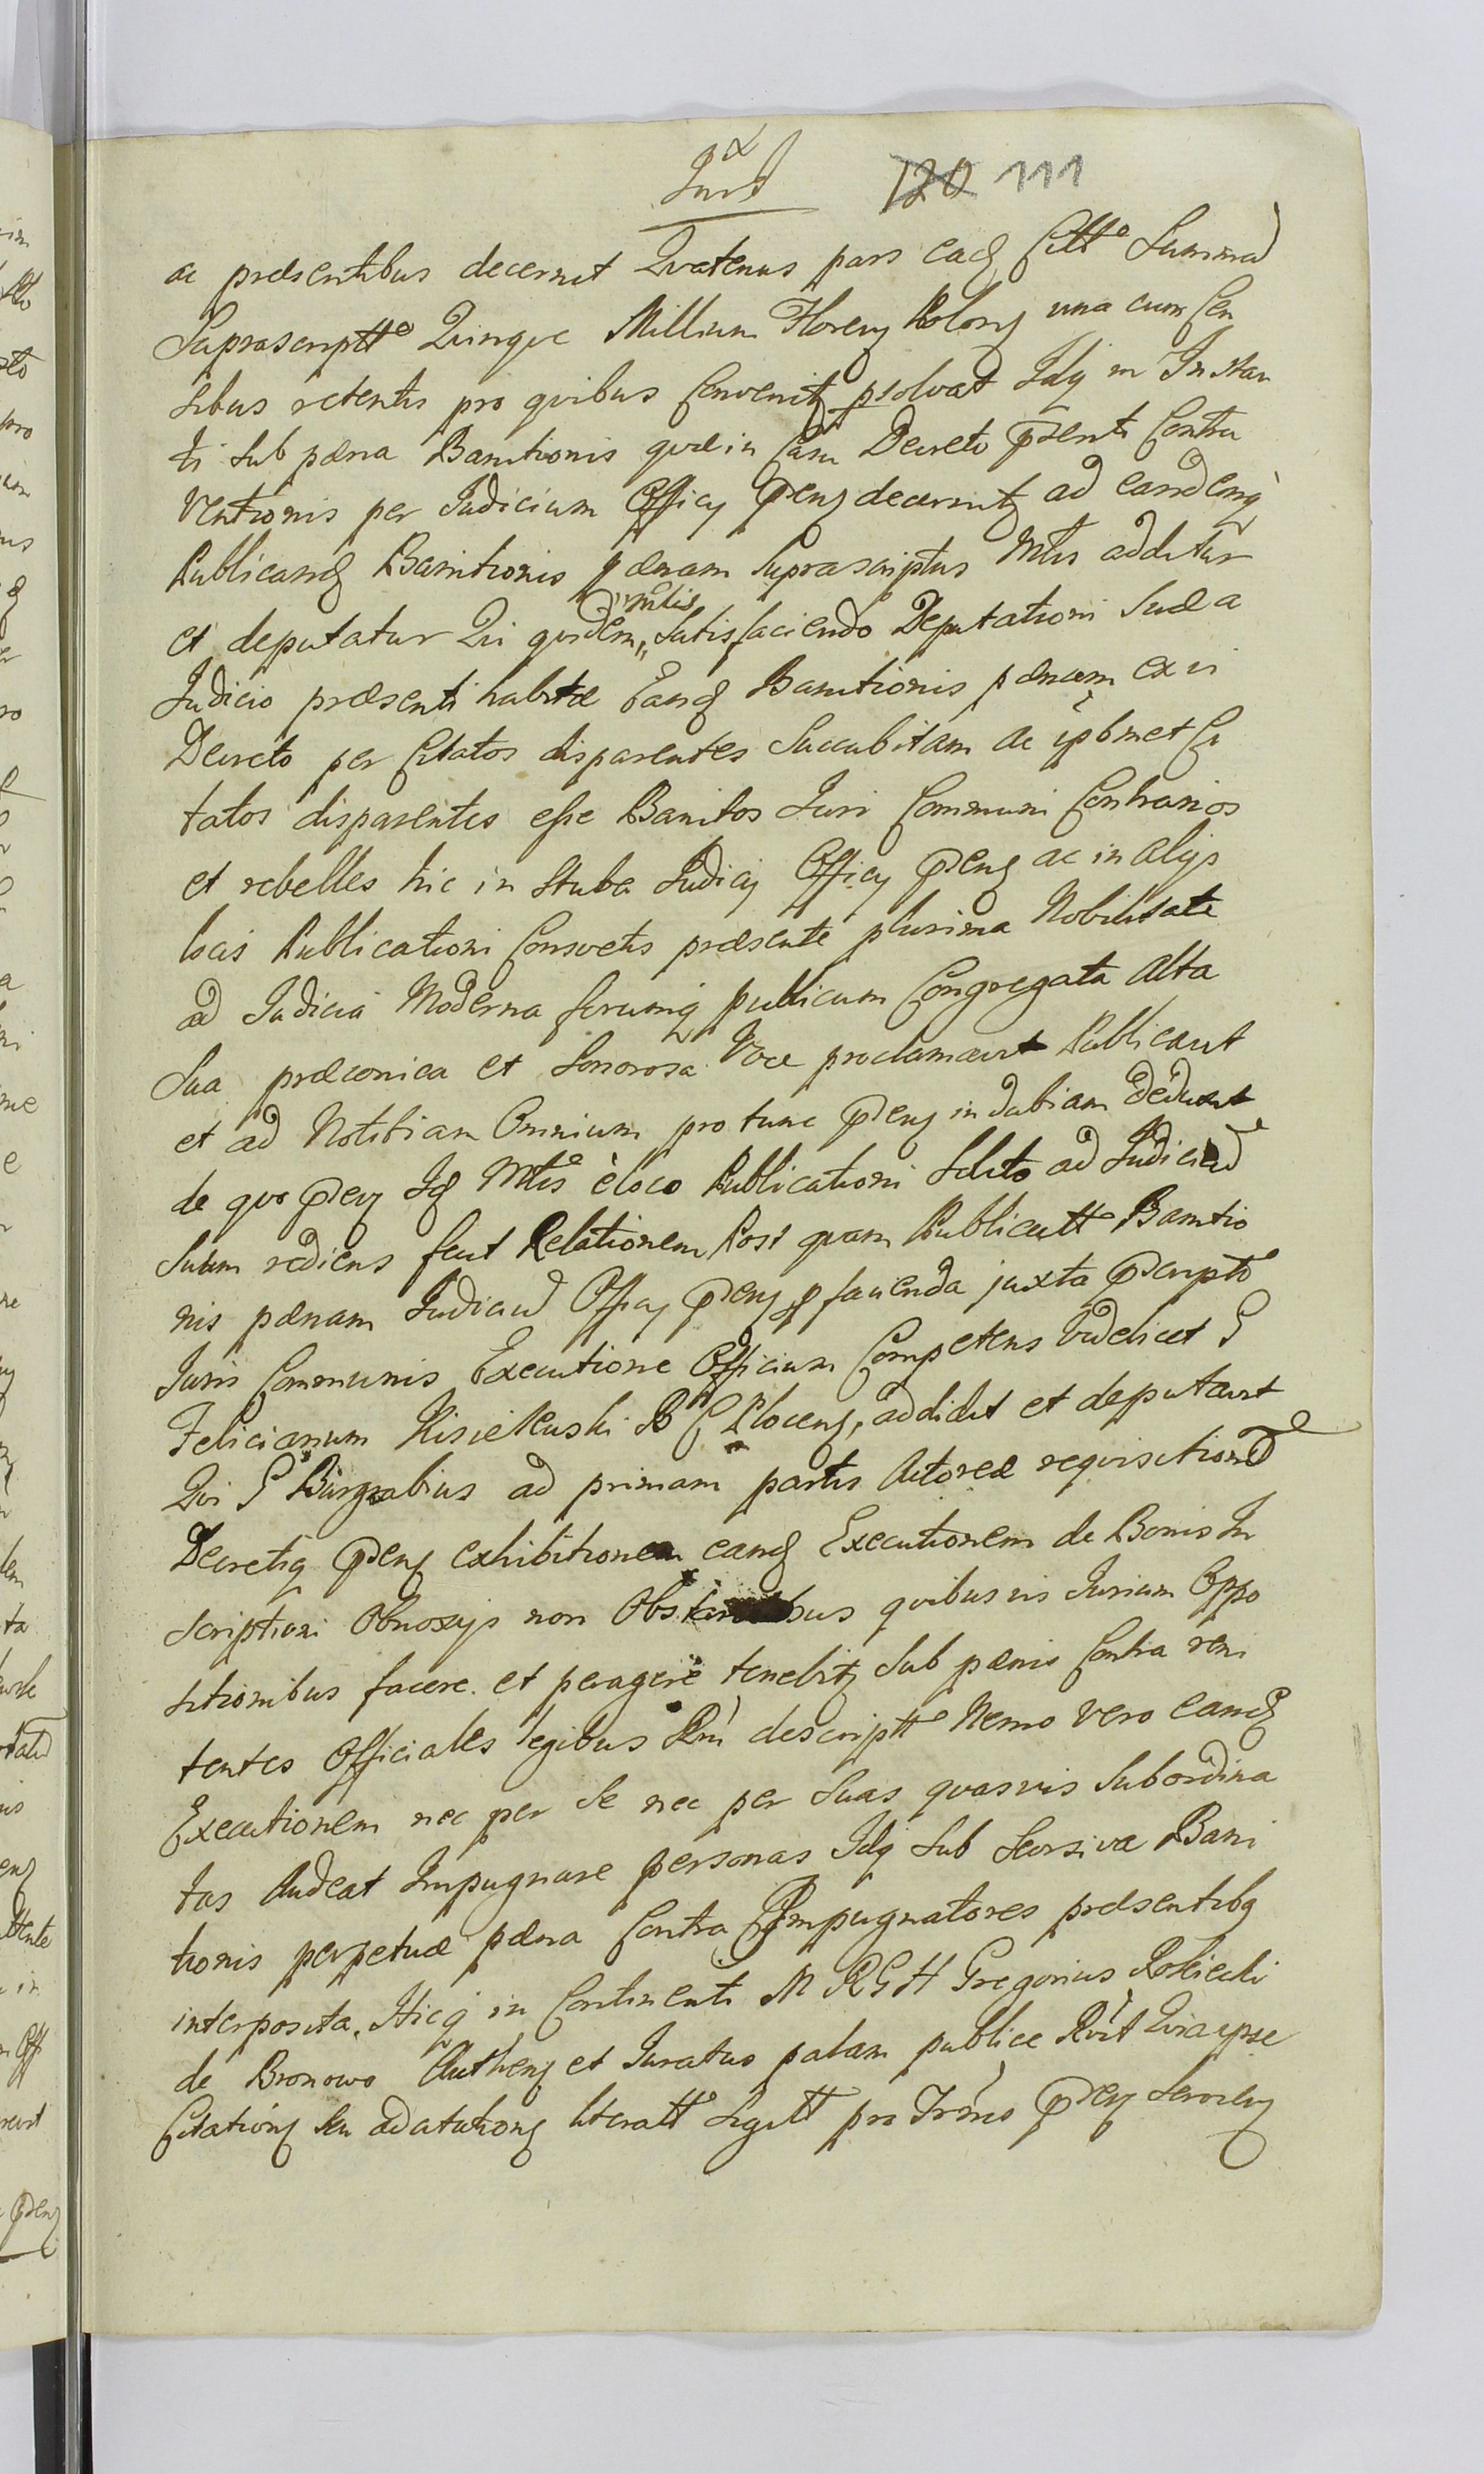 120 111
ac præsentibus decernit Qvatenus pars ead Citt Summad
Suprascriptt Qvinqve Millium Floreng Polong una cum Cen
sibus retentis pro qvibus Convenitz psolvat Idq in Instan
ti sub pæna Banitionis qvæ in Casu Decreto pdenti Contra
Ventionis per Judicium Officy pdeng decernitz ad eandemq
Publicand Banitionis pænam Suprascriptus Mtis additur
et deputatur Qvi qvidem Mtlis Satisfaciendo Deputationi Suæ a
Judicio præsenti habitæ Eand Banitionis pænam ex vi
Decreto per Citatos disparentes Succubitam ac ipsmet Ci
tatos disparentes esse Banitos Juri Communi Contrarios
et rebelles hic in Stuba Judicy Officy pdeng ac in alijs
locis Publicationi Consvetis præsente plurima Nobilitate
ad Judicia Moderna forumq publicum Congregata alta
Sua præconica et Sonorosa Voce proclamavit Publicavit
et ad Notitiam Omnium pro tunc pdeng indubiam deduxit
de qvo pdeng Id Mtis è loco Publicationi Solito ad Judiciud
Suum rediens fecit Relationem Post qvam Publicatt Banitio
nis pænam Judiciud Officy pdeng p facienda juxta pdscripto
Juris Communis Executione Officium Competens Videlicet G
Felicianum Kisielewski B C Ploceng, addidit et deputavit
Qvi G Burgrabius ad primam partis Actoreæ reqvisitioned
Decretiq pdeng exhibitionem eand Executionem de Bonis In
scriptioni Obnoxijs non Obstantibus qvibusvis Jurium Oppo
sitionibus facere et peragere tenebitz Sub pænis Contra reni
tentes Officiales legibus Rni descriptt Nemo vero eand
Executionem nec per Se nec per Suas qvasvis Subordina
tas Audeat Impugnare personas Idq Sub Seorsiva Bani
tionis perpetuæ pæna Contra Impugnatores præsentibq
interposita. Hicq in Continenti M R G H Gregorius Rokicki
de Bronowo Autheng et Juratus palam publice Rvit Qvia ipse
Citationg Seu adcitationg literatt Sigitt pro Trmo pdeng Servieng